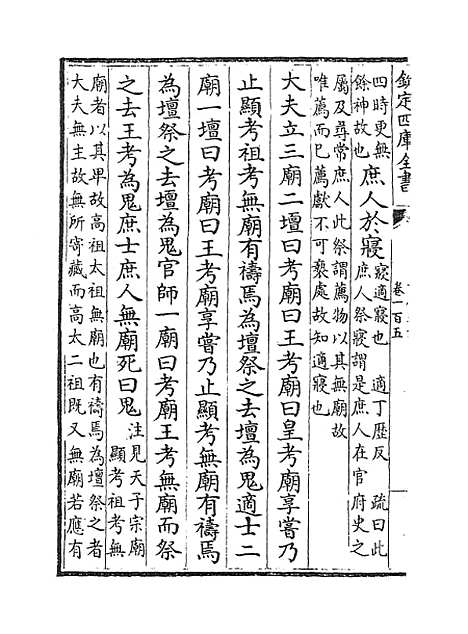 欽定四庫全書
卷一百五
四時更無
餘神故也
庶人於寢
寢適寢也 適丁歷反 疏曰此
庶人祭寢謂是庶人在官府史之
屬及尋常庶人此祭謂薦物以其無廟故
唯薦而已薦獻不可褻處故知適寢也
大夫立三廟二壇曰考廟曰王考廟曰皇考廟享嘗乃
止顯考祖考無廟有禱焉為壇祭之去壇為鬼適士二
廟一壇曰考廟曰王考廟享嘗乃止顯考無廟有禱焉
為壇祭之去壇為鬼官師一廟曰考廟王考無廟而祭
之去王考為鬼庶士庶人無廟死曰鬼
注見天子宗廟
顯考祖考無
廟者以其卑故高祖太祖無廟也有禱焉為壇祭之者
大夫無主故無所寄藏而高太二祖既又無廟若應有